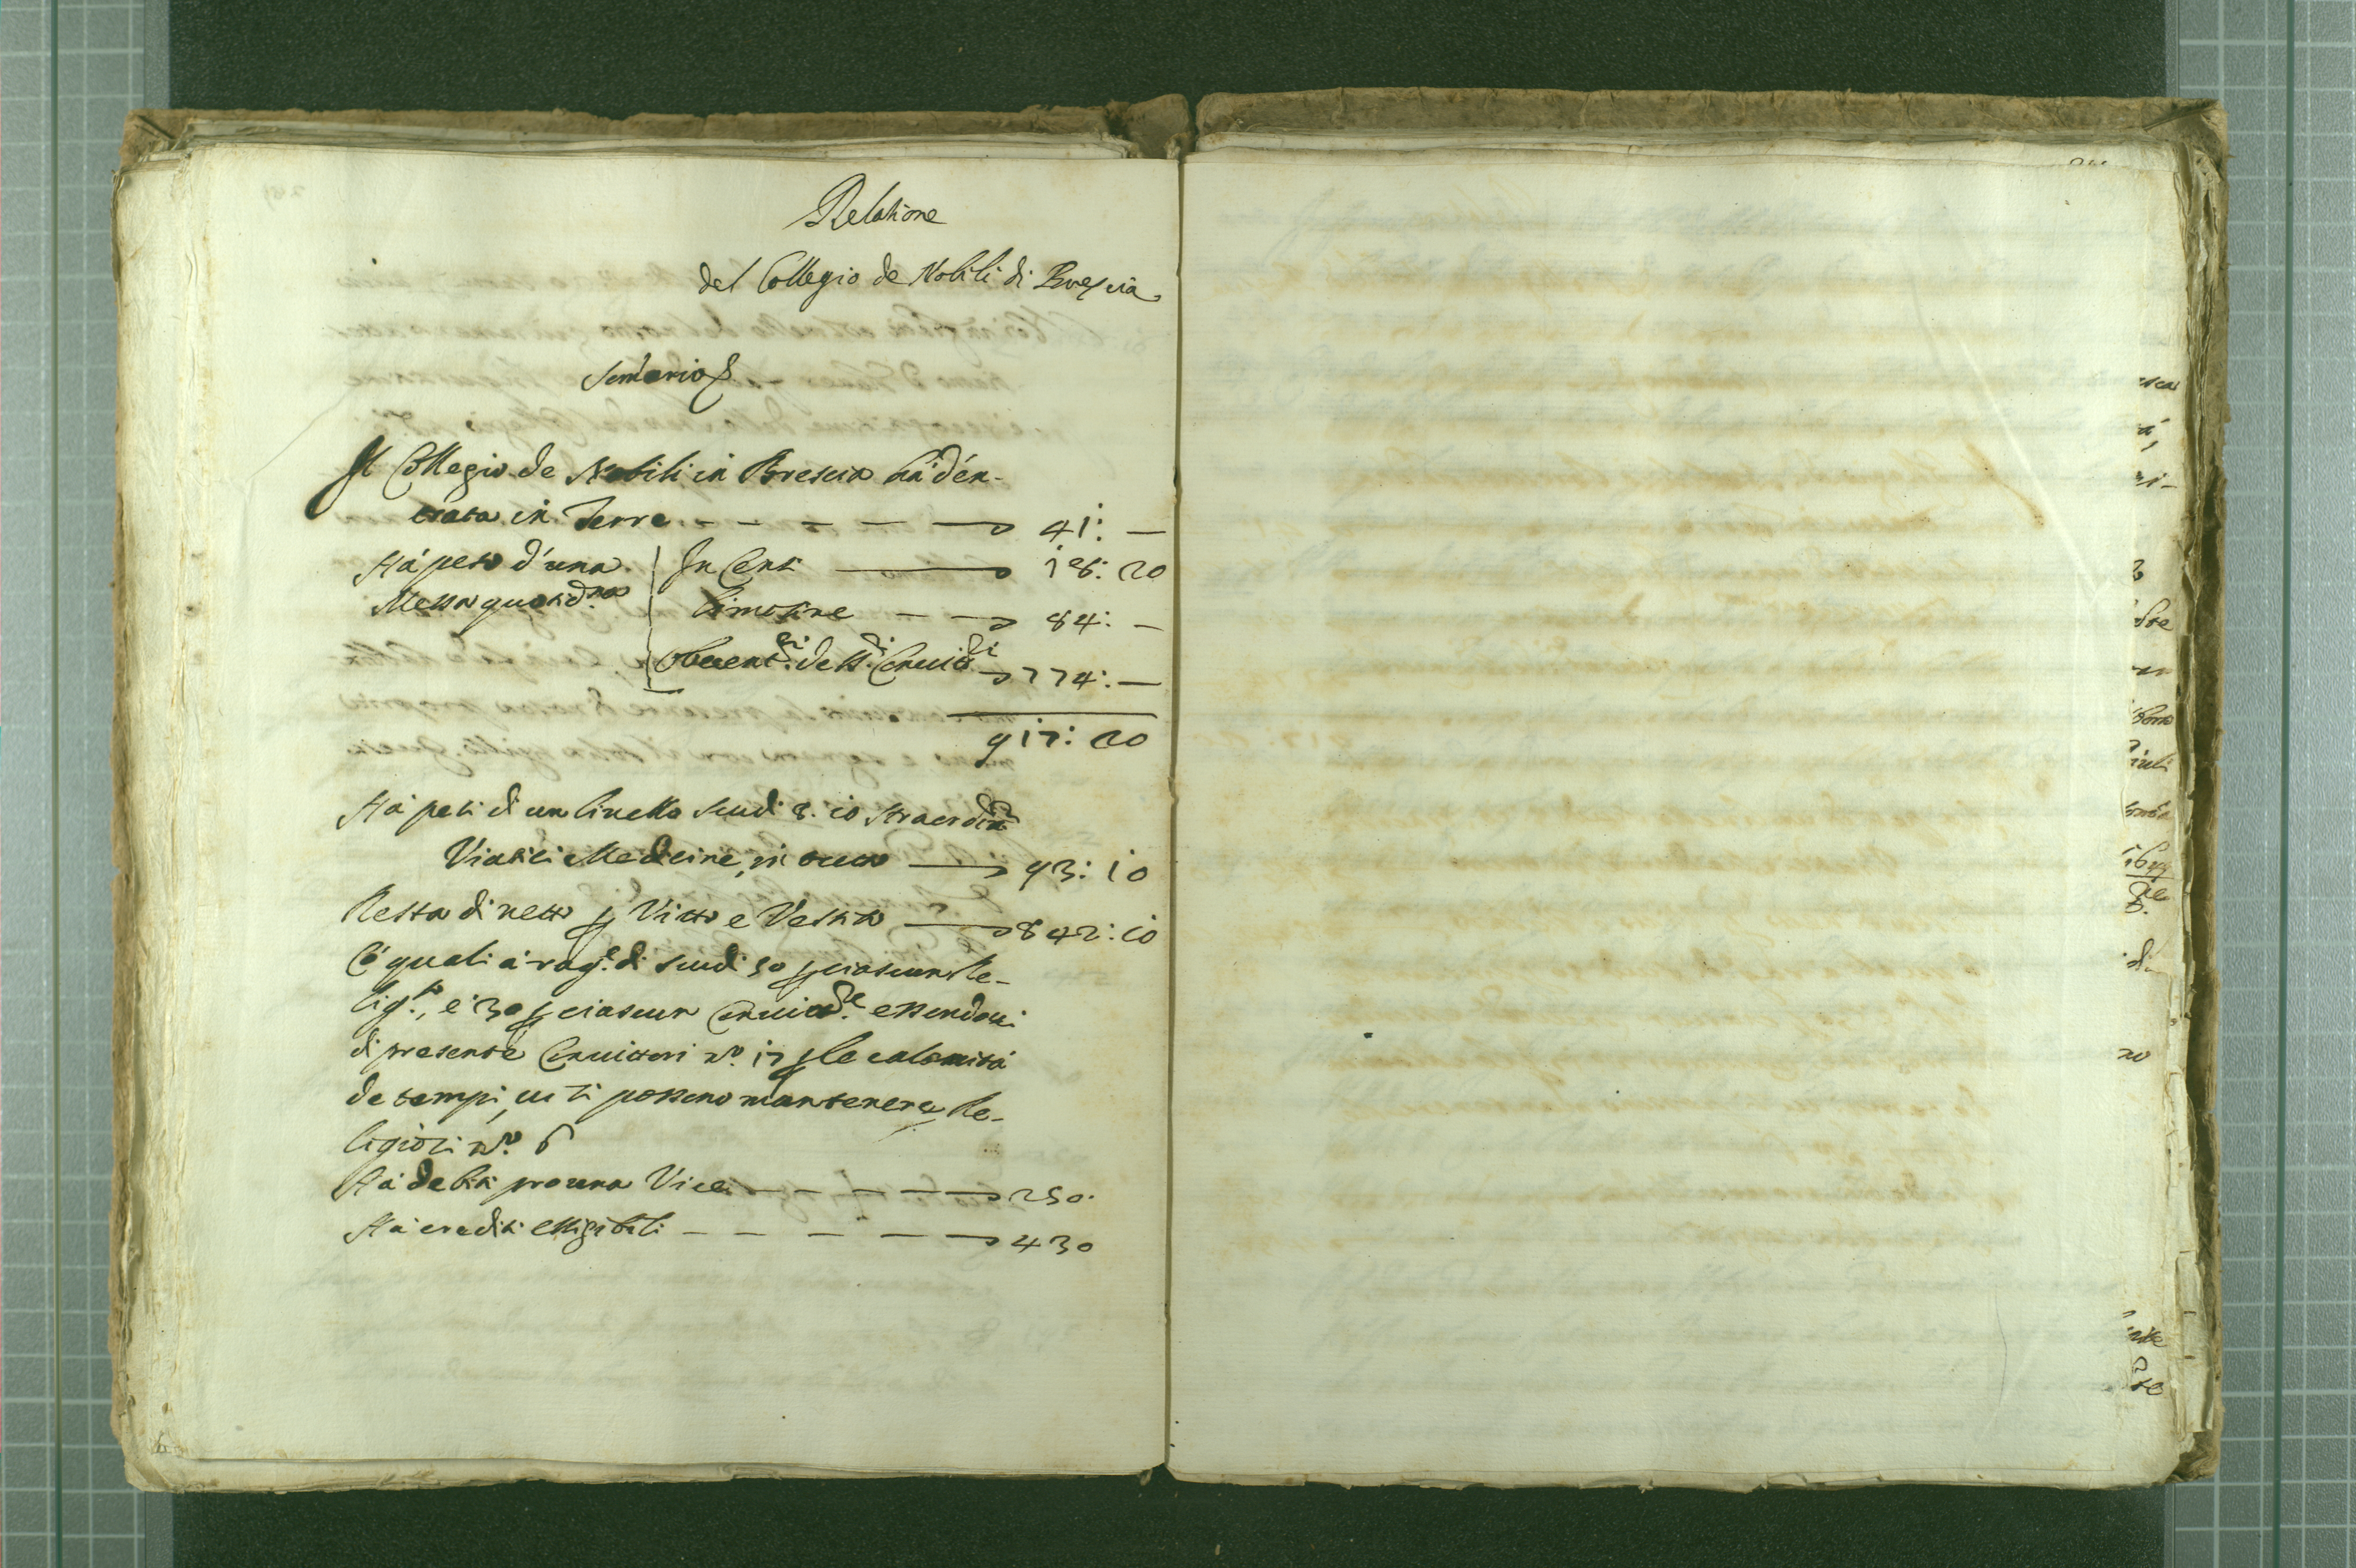 Relatione
del Collegio de Nobili di Brescia
Il Collegio de Nobili in Brescia hà d'en-
trata in Terre 41: —
Hà peso d'una In Censi 18: 20
Messa quotid.na Limosine — 84: —
de ss.ri Convitt.ri 774: —
917: 20
Hà pesi di un livello scudi 8. 10 straord.rij
Viatici Medicine, in tutto — 93: 10
Resta di netto p Vitto e Vestito — 842: 10
Cò quali à rag.e di scudi 50 p ciascun Re-
lig.so, e 30 p ciascun Convitt.re essendoui
di presente Convittori n.o 17 p le calamità
de tempi, ui si possono mantenere Re-
ligiosi n.o 6
Hà debiti pro una Vice — 250.
Hà crediti essigibili — 430